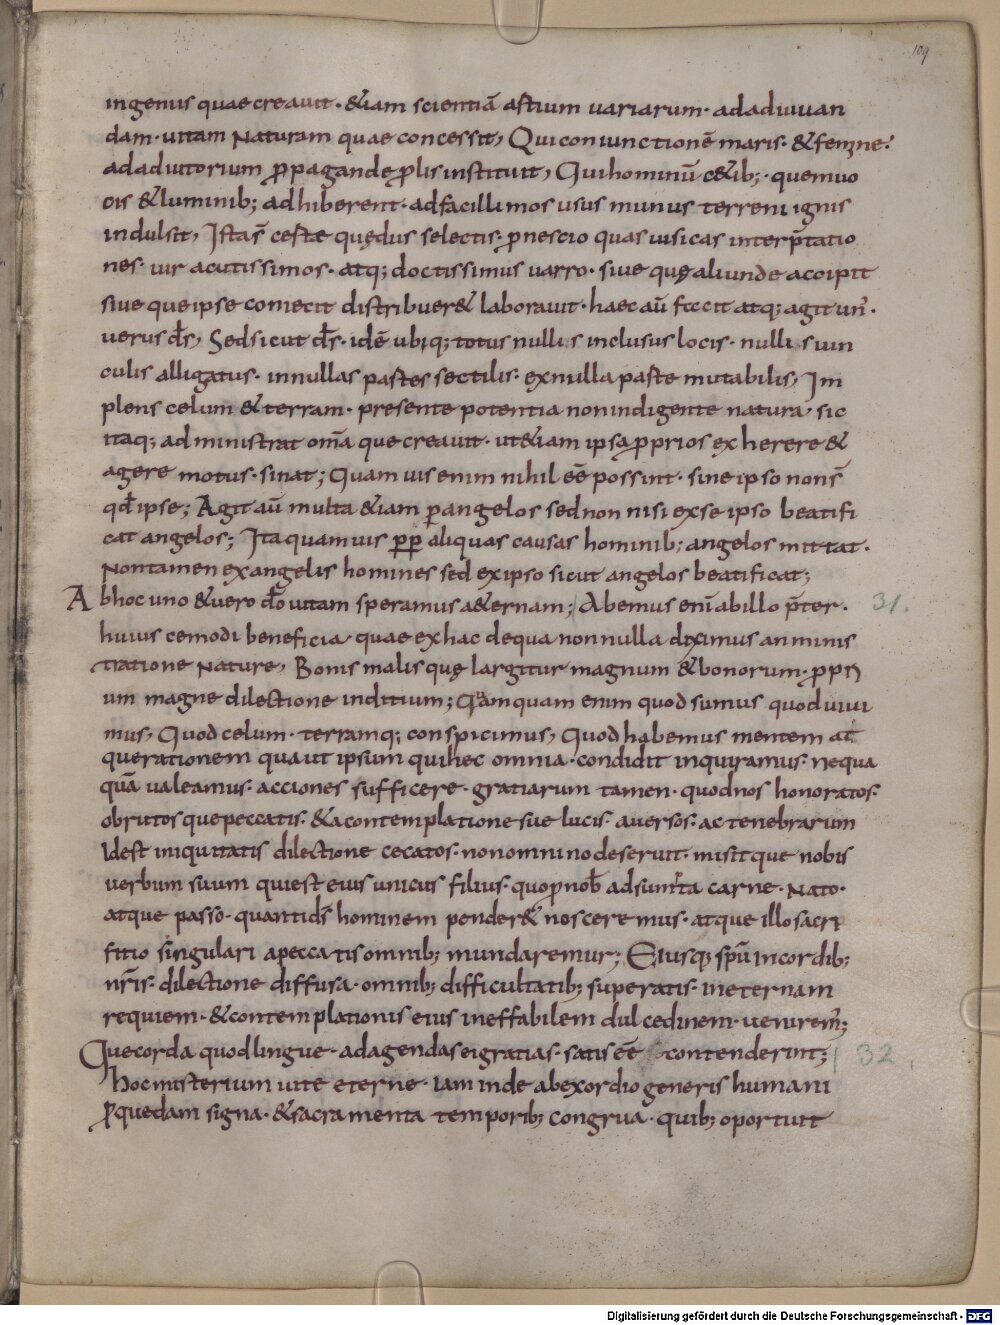 109
ingenus quae creavit · &iam scientiā astium variarum · ad adiuvan
dam · vitam Naturam quae concessit, Qui coniunctionē maris · & femine ·
ad adiutorium ꝓpagande ꝓlis instituit, Qui hominū c&ib; · quem vo
cis & luminib; adhiberent · ad facillimos usus munus terreni ignis
indulsit, Istas̄ certe quędus selectis · ꝑ nescio quas uisicas interp̄tatio
nes · uir acutissimos · atq; doctissimus varro · sive quę aliunde accipit
sive que ipse coniecit distribuer& laboravit · haec aū fecit atq; agit un᷒ ·
verus d̄s, Sed sicut d̄s · idē ubiq; totus nullis inclusus locis · nullis uin
culis alligatus · in nullas pastes sectilis · ex nulla paste mutabilis, Im
plens celum & terram · presente potentia non indigente natura, sic
itaq; administrat om̄a que creavit · ut &iam ipsa ꝓprios exherere &
agere motus · sinat; Quam uis enim nihil eē possint · sine ipso non s̄
qđ ipse; Agit aū multa &iam ꝑ angelos sed non nisi ex se ipso beatifi
cat angelos; Ita quamuis ꝓp aliquas causas hominib; angelos mittat ·
Non tamen ex angelis homines sed ex ipso sicut angelos beatificat;
Ab hoc uno & vero d̄o vitam speramus a&ernam; Abemus enī ab illo p̄ter · 31.
huius cemodi beneficia · quae ex hac de qua non nulla diximus anminis
tratione Nature, Bonis malisquę largitur magnum & bonorum · ꝓpri
um magne dilectione inditium; Quamquam enim quod sumus quod vivi
mus, Quod celum · terramq; conspicimus, Quod habemus mentem at
que rationem qua ut ipsum qui hec omnia · condidit inquiramus · nequa
quā valeamus · acciones sufficere · gratiarum tamen · quod nos honoratos ·
obrutosque peccatis · & a contemplatione sue lucis · aversos · ac tenebrarum
Idest iniquitatis dilectione cecatos · non omnino deseruit · misitque nobis
verbum suum qui est eius unicus filius · quo ꝓ nob̄ adsumta carne · Nato ·
atque passo · quanti d̄s hominem pender& nosceremus · atque illo sacri
fitio singulari a peccatis omnib; mundaremur; Eiusq; sp̄u In cordib;
nr̄is · dilectione diffusa · omnib; difficultatib; superatis · in eternam
requiem · & contemplationis eius ineffabilem dulcedinem · venirem᷒;
Que corda quod lingue · ad agendas ei gratias · satis eē contenderint; 32.
hoc misterium vite eterne · iam inde ab exordio generis humani
ꝑ quedam signa · & sacramenta temporib; congrua · quib; oportuit
Digitalisierung gefördert durch die Deutsche Forschungsgemeinschaft - DFG